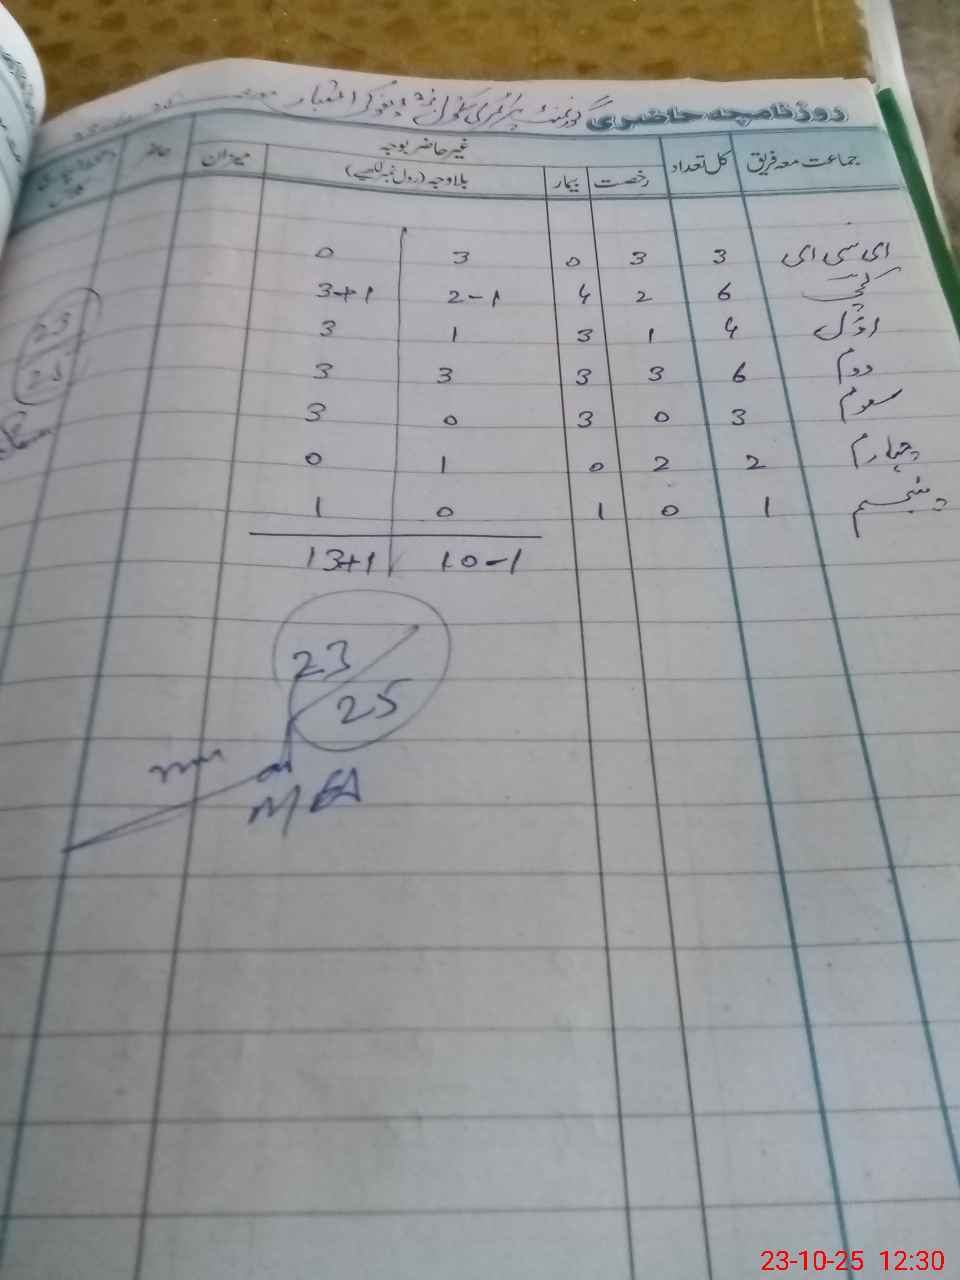 روزنامچہ حاضری گورنمنٹ پرائمری سکول نمبر
جماعت معہ فریق کل تعداد رخصت بیمار غیر حاضر بوجہ میزان حاضر
بلاوجہ (رول نمبر لکھیے)
ای سی ای 3 3 0 3 0
کچی 6 2 4 2-1 3+1
اوّل 4 1 3 1 3
دوم 6 3 3 3 3
سوم 3 0 3 0 3
چہارم 2 2 0 1 0
پنجم 1 0 1 0 1
10-1 13+1
23
25
23
25
MEA
23-10-25 12:30